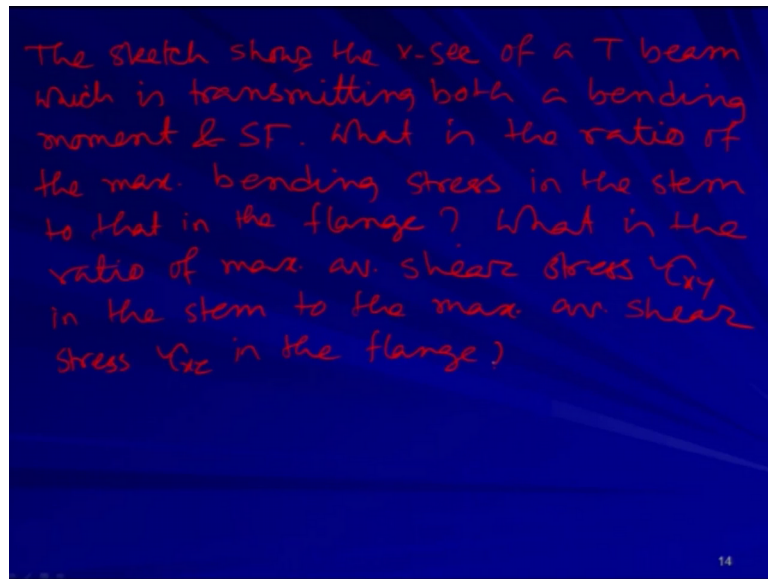 The sketch shows the x-sec of a T beam
which is transmitting both a bending
moment & SF. What is the ratio of
the max. bending stress in the stem
to that in the flange? What is the
ratio of max. av. shear stress τxy
in the stem to the max. av. shear
stress τxz in the flange?
14